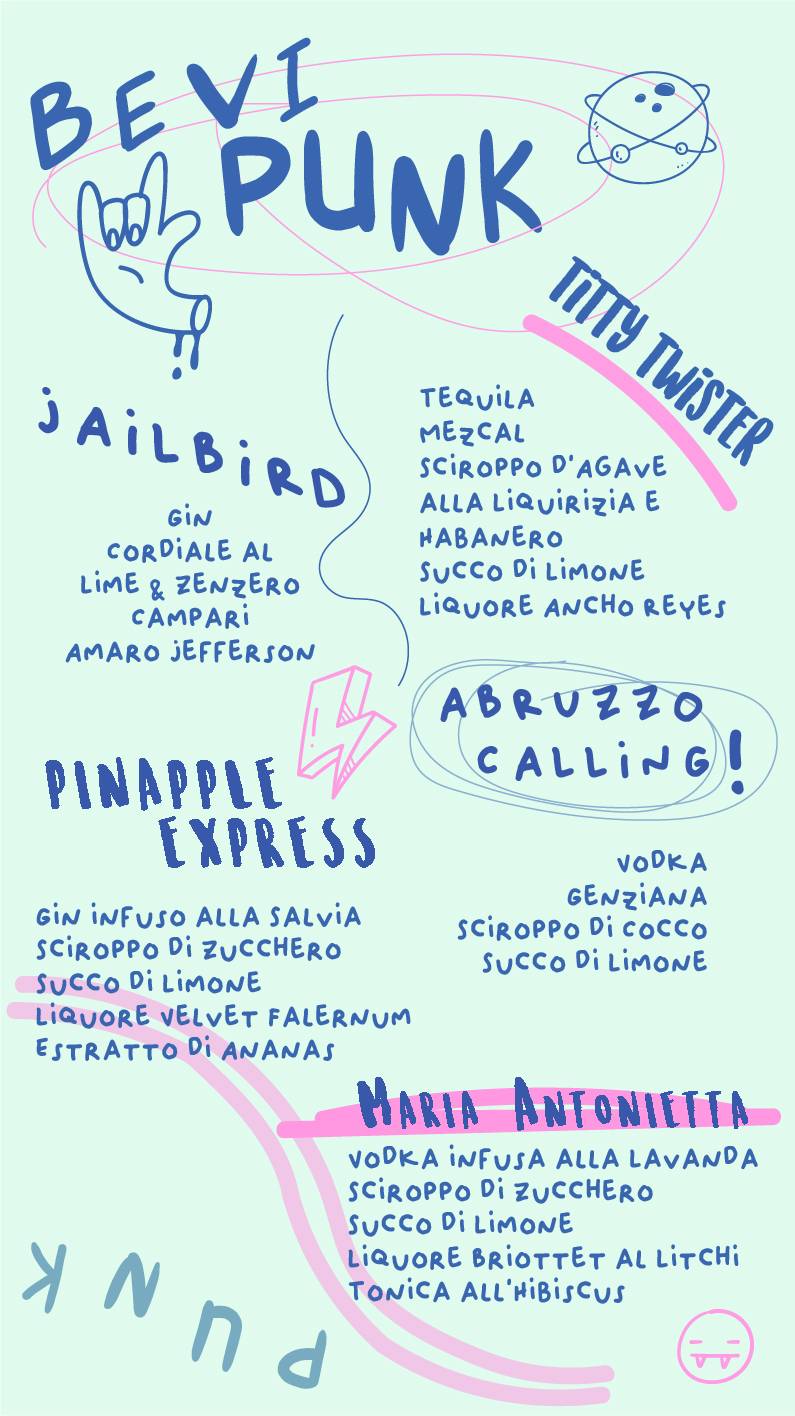 BEVI
PUNK
TITTY TWISTER
JAILBIRD
GIN
CORDIALE AL
LIME & ZENZERO
CAMPARI
AMARO JEFFERSON
TEQUILA
MEZCAL
SCIROPPO D'AGAVE
ALLA LIQUIRIZIA E
HABANERO
SUCCO DI LIMONE
LIQUORE ANCHO REYES
PINAPPLE
EXPRESS
GIN INFUSO ALLA SALVIA
SCIROPPO DI ZUCCHERO
SUCCO DI LIMONE
LIQUORE VELVET FALERNUM
ESTRATTO DI ANANAS
ABRUZZO
CALLING!
VODKA
GENZIANA
SCIROPPO DI COCCO
SUCCO DI LIMONE
MARIA ANTONIETTA
VODKA INFUSA ALLA LAVANDA
SCIROPPO DI ZUCCHERO
SUCCO DI LIMONE
LIQUORE BRIOTTET AL LITCHI
TONICA ALL'HIBISCUS
PUNK